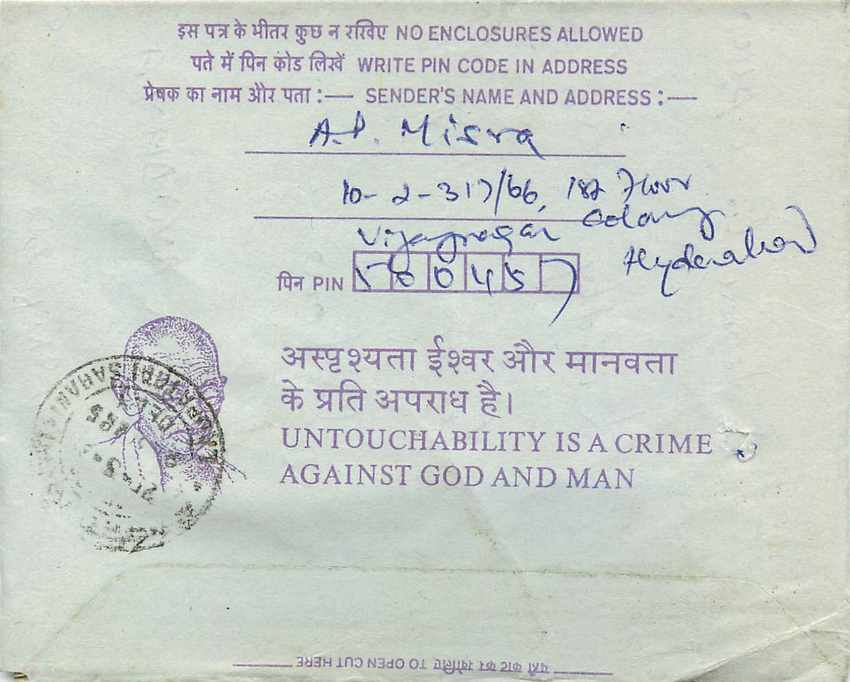 इस पत्र के भीतर कुछ न रखिए NO ENCLOSURES ALLOWED
पते में पिन कोड लिखें WRITE PIN CODE IN ADDRESS
प्रेषक का नाम और पता :— SENDER'S NAME AND ADDRESS :—
A.P. Misra
10-2-317/66, 1st Floor
Vijaynagar Colony
Hyderabad
पिन PIN 500457
अस्पृश्यता ईश्वर और मानवता
के प्रति अपराध है।
UNTOUCHABILITY IS A CRIME
AGAINST GOD AND MAN
यहाँ काट कर खोलिए TO OPEN CUT HERE